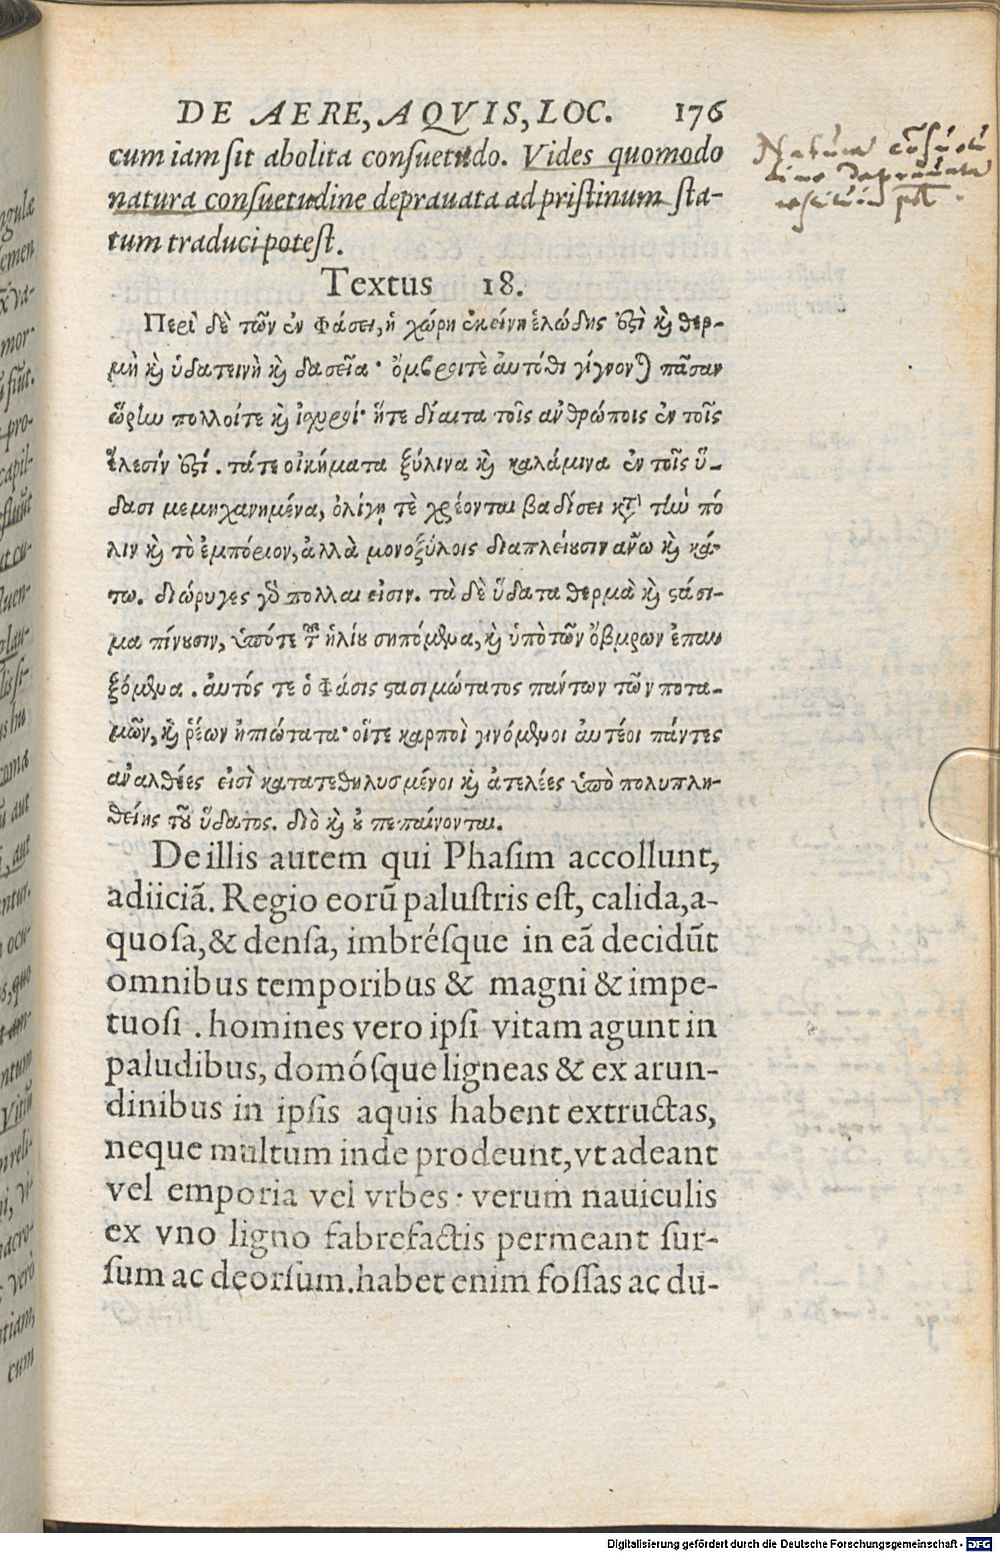 DE AERE, AQVIS, LOC. 176
cum iam sit abolita consuetudo. Vides quomodo
natura consuetudine deprauata ad pristinum sta-
tum traduci potest.
Natura cõsuetu
dine deprauata
restitui põt.
Textus 18.
Περὶ δὲ τῶν ἐν Φάσει, ἡ χώρη ἐκείνη ἑλώδης ἐστὶ καὶ θερ-
μὴ καὶ ὑδατεινὴ καὶ δασεῖα· ὄμβροιτὲ αὐτόθι γίγνονται πᾶσαν
ὥρην πολλοίτε καὶ ἰσχυροί· ἥτε δίαιτα τοῖς ἀνθρώποις ἐν τοῖς
ἕλεσίν ἐστί. τάτε οἰκήματα ξύλινα καὶ καλάμινα ἐν τοῖς ὕ-
δασι μεμηχανημένα, ὀλίγῃ τὲ χρέονται βαδίσει κατὰ τὴν πό
λιν καὶ τὸ ἐμπόριον, ἀλλὰ μονοξύλοις διαπλέουσιν ἄνω καὶ κά-
τω. διώρυγες γὸ πολλαι εἰσιν. τὰ δὲ ὕδατα θερμὰ καὶ στάσι-
μα πίνουσιν, ὑπότε τοῦ ἡλίου σηπόμενα, καὶ ὑπὸ τῶν ὄβμρων ἐπαυ
ξόμενα. αὐτός τε ὁ Φάσις στασιμώτατος πάντων τῶν ποτα-
μῶν, καὶ ῥέων ἠπιώτατα· οἵτε καρποὶ γινόμενοι αὐτέοι πάντες
ἀναλθέες εἰσὶ κατατεθηλυσμένοι καὶ ἀτελέες ὑπὸ πολυπλη-
θείης τοῦ ὕδατος. διὸ καὶ οὐ πεπαίνονται.
De illis autem qui Phasim accollunt,
adiiciã. Regio eorũ palustris est, calida, a-
quosa, & densa, imbrésque in eã decidũt
omnibus temporibus & magni & impe-
tuosi. homines vero ipsi vitam agunt in
paludibus, domósque ligneas & ex arun-
dinibus in ipsis aquis habent extructas,
neque multum inde prodeunt, vt adeant
vel emporia vel vrbes· verum nauiculis
ex vno ligno fabrefactis permeant sur-
sum ac deorsum. habet enim fossas ac du-
Digitalisierung gefördert durch die Deutsche Forschungsgemeinschaft - DFG